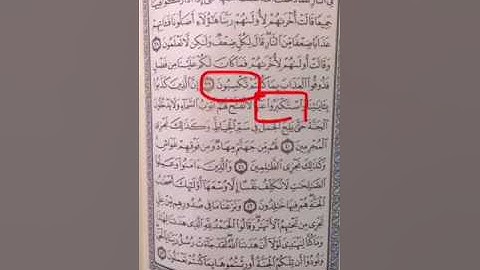 جَمِيعًا قَالَتْ أُخْرَىٰهُمْ لِأُولَىٰهُمْ رَبَّنَا هَٰٓؤُلَآءِ أَضَلُّونَا فَـَٔاتِهِمْ
عَذَابًا ضِعْفًا مِّنَ ٱلنَّارِ قَالَ لِكُلٍّ ضِعْفٌ وَلَٰكِن لَّا تَعْلَمُونَ ٣٨
وَقَالَتْ أُولَىٰهُمْ لِأُخْرَىٰهُمْ فَمَا كَانَ لَكُمْ عَلَيْنَا مِن فَضْلٍ
فَذُوقُوا۟ ٱلْعَذَابَ بِمَا كُنتُمْ تَكْسِبُونَ ٣٩ إِنَّ ٱلَّذِينَ كَذَّبُوا۟
بِـَٔايَٰتِنَا وَٱسْتَكْبَرُوا۟ عَنْهَا لَا تُفَتَّحُ لَهُمْ أَبْوَٰبُ ٱلسَّمَآءِ وَلَا يَدْخُلُونَ
ٱلْجَنَّةَ حَتَّىٰ يَلِجَ ٱلْجَمَلُ فِى سَمِّ ٱلْخِيَاطِ وَكَذَٰلِكَ نَجْزِى
ٱلْمُجْرِمِينَ ٤٠ لَهُم مِّن جَهَنَّمَ مِهَادٌ وَمِن فَوْقِهِمْ غَوَاشٍ
وَكَذَٰلِكَ نَجْزِى ٱلظَّٰلِمِينَ ٤١ وَٱلَّذِينَ ءَامَنُوا۟ وَعَمِلُوا۟
ٱلصَّٰلِحَٰتِ لَا نُكَلِّفُ نَفْسًا إِلَّا وُسْعَهَآ أُو۟لَٰٓئِكَ أَصْحَٰبُ
ٱلْجَنَّةِ هُمْ فِيهَا خَٰلِدُونَ ٤٢ وَنَزَعْنَا مَا فِى صُدُورِهِم مِّنْ غِلٍّ
تَجْرِى مِن تَحْتِهِمُ ٱلْأَنْهَٰرُ وَقَالُوا۟ ٱلْحَمْدُ لِلَّهِ ٱلَّذِى هَدَىٰنَا لِهَٰذَا
وَمَا كُنَّا لِنَهْتَدِىَ لَوْلَآ أَنْ هَدَىٰنَا ٱللَّهُ لَقَدْ جَآءَتْ رُسُلُ رَبِّنَا بِٱلْحَقِّ
وَنُودُوٓا۟ أَن تِلْكُمُ ٱلْجَنَّةُ أُورِثْتُمُوهَا بِمَا كُنتُمْ تَعْمَلُونَ